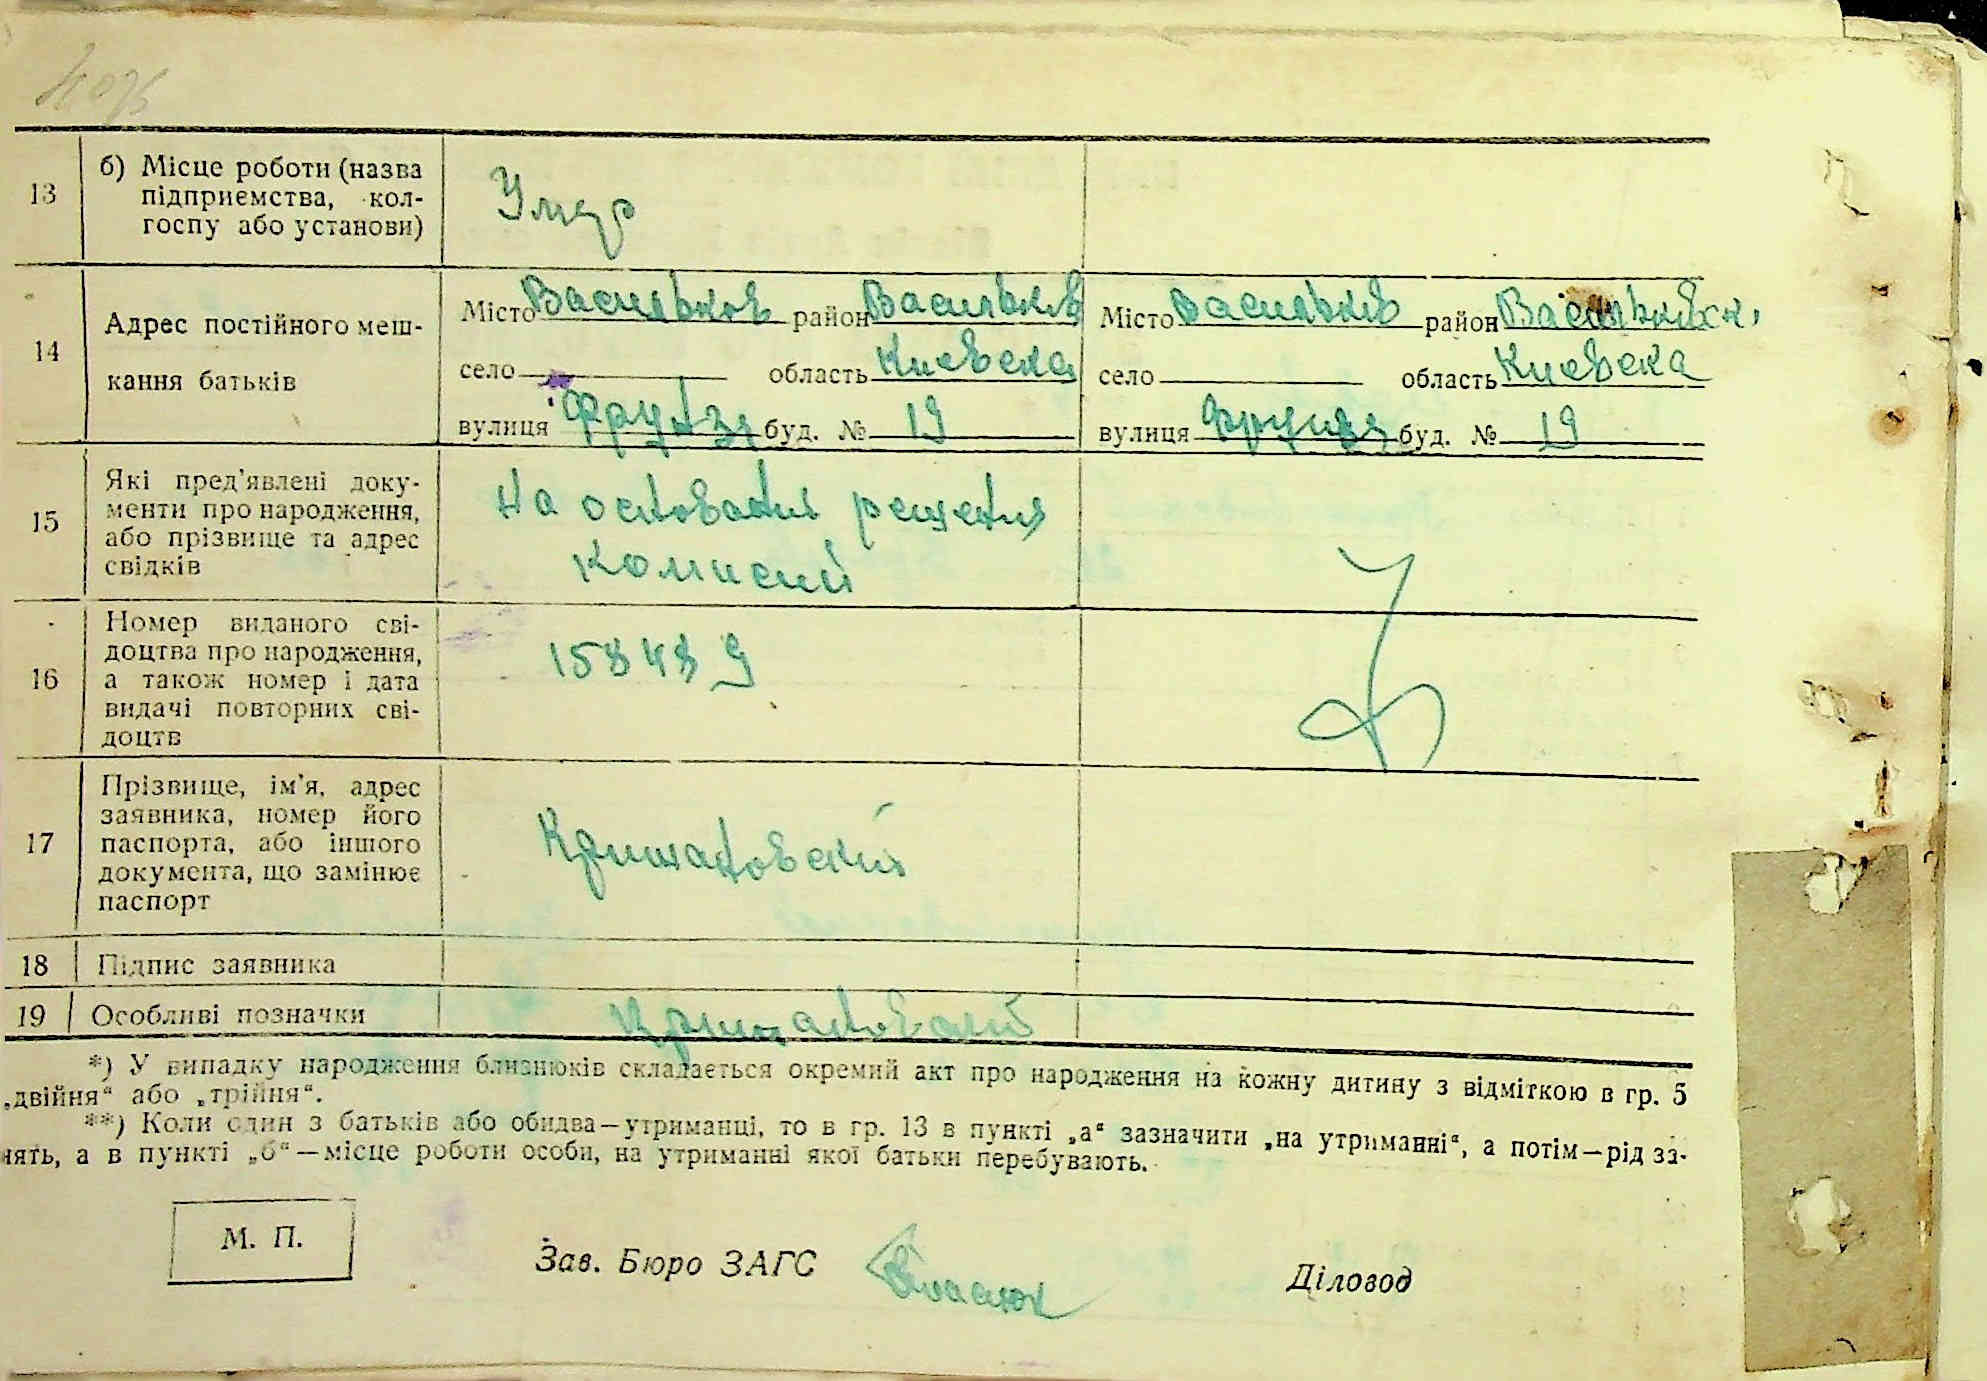 13
б) Місце роботи (назва
підприємства, кол-
госпу або установи)
Умер
14
Адрес постійного меш-
кання батьків
Місто Васильков район Васильків
село область Киевска
вулиця Фрунзе буд. № 19
Місто Васильків район Васильківск.
село область Киевска
вулиця Фрунзе буд. № 19
15
Які пред'явлені доку-
менти про народження,
або прізвище та адрес
свідків
На основания решения
комисий
16
Номер виданого сві-
доцтва про народження,
а також номер і дата
видачі повторних сві-
доцтв
17
Прізвище, ім'я, адрес
заявника, номер його
паспорта, або іншого
документа, що замінює
паспорт
Кришановский
18
Підпис заявника
19
Особливі позначки
Кришановский
*) У випадку народження близнюків складається окремий акт про народження на кожну дитину з відміткою в гр. 5
„двійня“ або „трійня“.
**) Коли один з батьків або обидва—утриманці, то в гр. 13 в пункті „а“ зазначити „на утриманні“, а потім—рід за-
нять, а в пункті „б“—місце роботи особи, на утриманні якої батьки перебувають.
М. П.
Зав. Бюро ЗАГС Власюк
Діловод